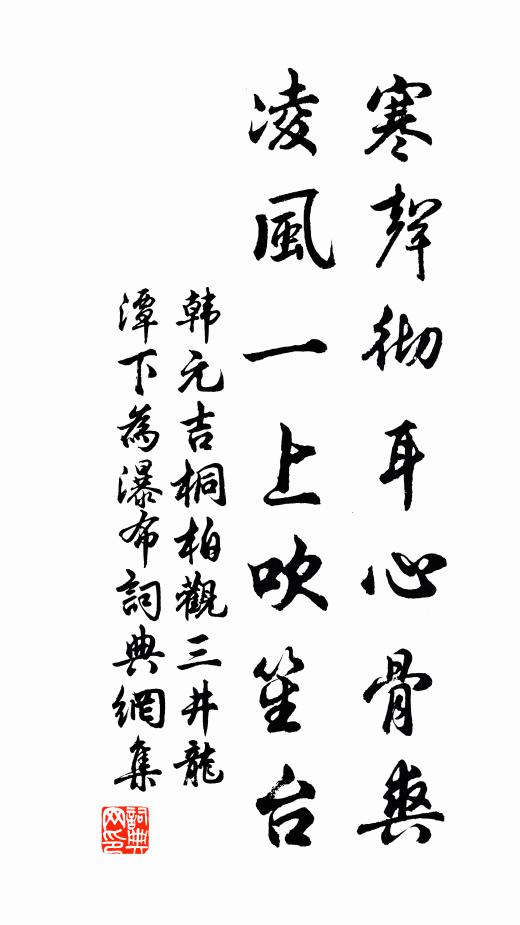 寒聲彻耳心骨爽
凌風一上吹笙台
韩元吉桐柏觀三井龍
潭下為瀑布詞典網集
詞典网印